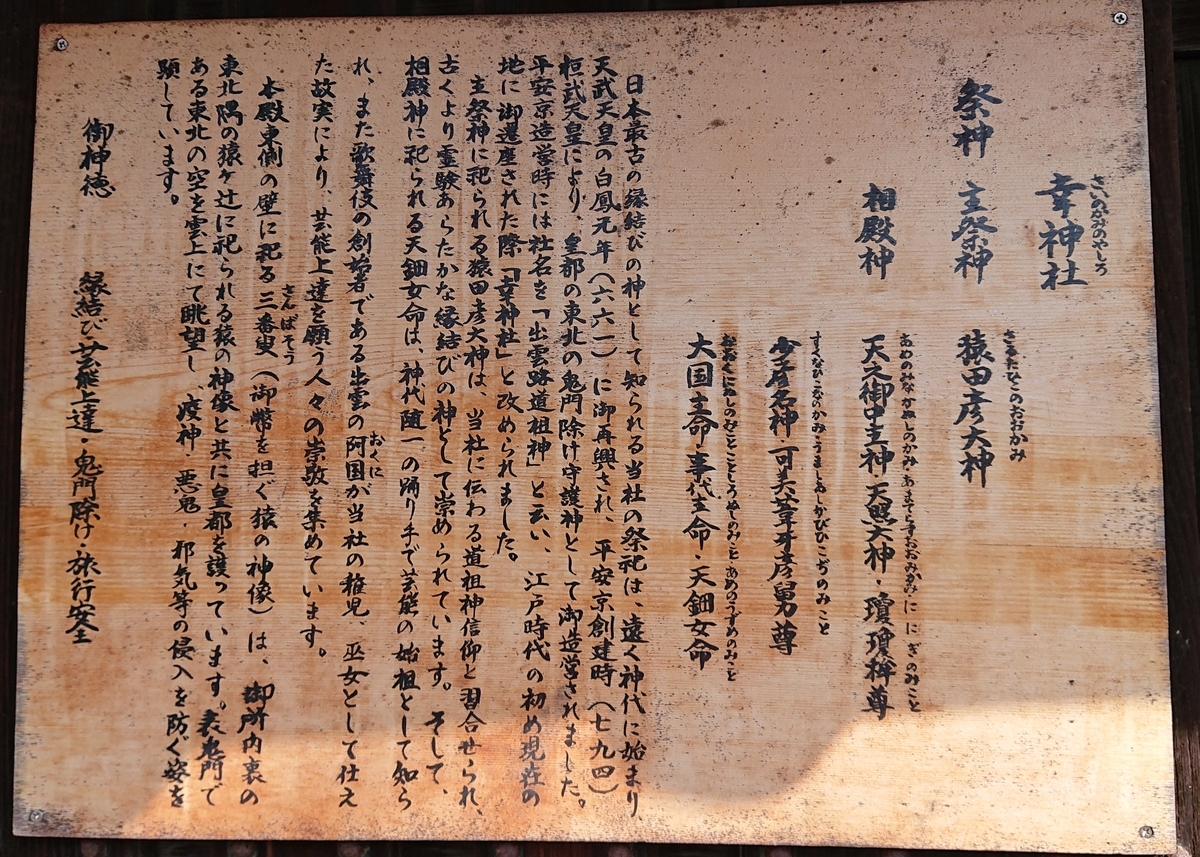 さいのかみのやしろ
幸神社
さるたひこのおおかみ
祭神 主祭神 猿田彦大神
あめのみなかぬしのかみ・あまてらすおおみかみ・ににぎのみこと
相殿神 天之御中主神・天照大神・瓊瓊杵尊
すくなひこなのかみ・うましあしかびひこぢのみこと
少彦名神・可美葦牙彦舅尊
おおくにぬしのみこと・ことしろぬしのみこと・あめのうずめのみこと
大国主命・事代主命・天鈿女命
日本最古の縁結びの神として知られる当社の祭祀は、遠く神代に始まり
天武天皇の白鳳元年(六六一)に御再興され、平安京創建時(七九四)
桓武天皇により、皇都の東北の鬼門除け守護神として御造営されました。
平安京造営時には社名を「出雲路道祖神」と云い、江戸時代の初め現在の
地に御遷座された際「幸神社」と改められました。
主祭神に祀られる猿田彦大神は、当社に伝わる道祖神信仰と習合せられ、
古くより霊験あらたかな縁結びの神として崇められています。そして、
相殿神に祀られる天鈿女命は、神代随一の踊り手で芸能の始祖として知ら
れ、また歌舞伎の創始者である出雲の阿国が当社の稚児、巫女として仕え
おくに
た故実により、芸能上達を願う人々の崇敬を集めています。
本殿東側の壁に祀る三番叟(御幣を担ぐ猿の神像)は、御所内裏の
さんばそう
東北隅の猿ヶ辻に祀られる猿の神像と共に皇都を護っています。表鬼門で
ある東北の空を雲上にて眺望し、疫神・悪鬼・邪気等の侵入を防ぐ姿を
顕しています。
御神徳 縁結び・芸能上達・鬼門除け・旅行安全